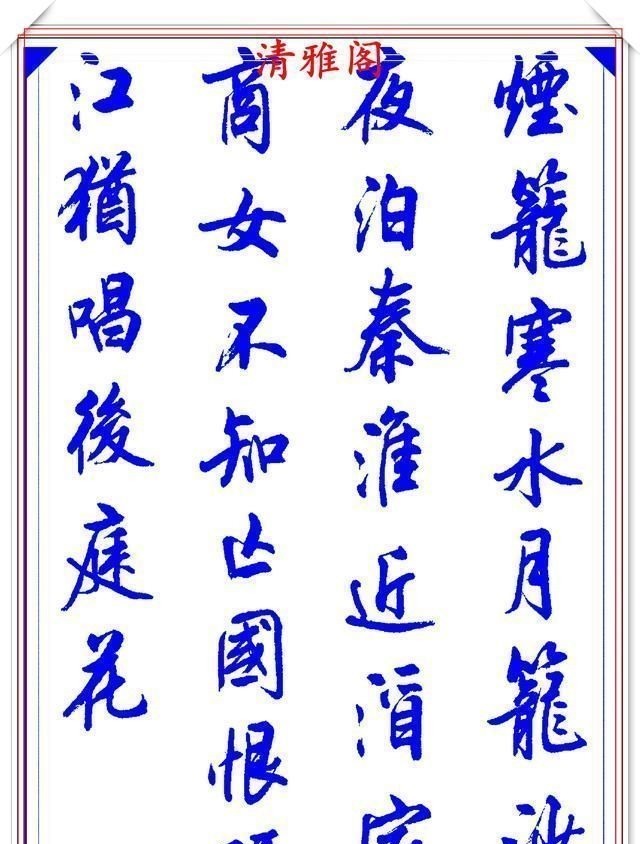 清雅阁
煙籠寒水月籠沙
夜泊秦淮近酒家
商女不知亡國恨
江猶唱後庭花